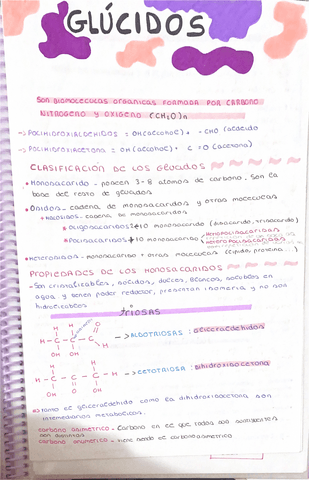 GLÚCIDOS
Son biomoleculas organicas formada por carbono
nitrogeno y oxigeno (CH₂O)n
-> Polihidroxialdehidos = OH(alcohol) + -CHO (aldeido
-> Polihidroxiacetona = OH (alcohol) + C=O (acetona)
CLASIFICACION DE LOS GLÚCIDOS
* Monosacarido - poseen 3-8 atomos de carbono. Son la
base del resto de glucidos
* Ósidos - cadena de monosacaridos y otras moleculas
* Holosidos - cadena de monosacaridos
* Oligosacaridos ≤10 monosacarido (disacarido, trisacarido)
* Polisacaridos >10 monosacarido
Homopolisacaridos
Heteropolisacaridos
* Heterosidos - monosacarido + otras moleculas (lipidos, proteina...)
PROPIEDADES DE LOS MONOSACARIDOS
- Son cristalizables, solidos, dulces, blancos, solubles en
agua y tienen poder reductor, presentan isomeria y no son
hidrolizables
TRIOSAS
H H O
H - C - C - C
H
OH OH
-> ALDOTRIOSAS : Gliceraldehidos
H H
H - C - C - C - H
OH O OH
-> CETOTRIOSA : Dihidroxiacetona
Tanto el gliceraldehido como la dihidroxiacetona son
intermediarios metabolicos.
carbono asimetrico - Carbono en el que todos sus sustituyentes
son distintos
carbono anumerico - viene siendo el carbono asimetrico